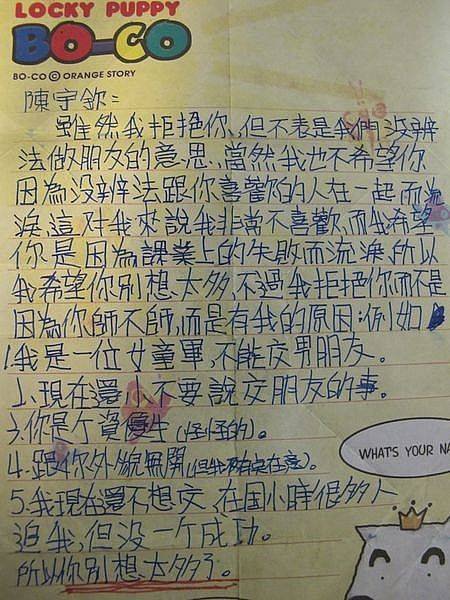 LOCKY PUPPY
BO-CO
BO-CO © ORANGE STORY
陳宇欽：
雖然我拒絕你，但不表是我們沒辦
法做朋友的意思，當然我也不希望你
因為沒辦法跟你喜歡的人在一起而流
淚，這对我來說我非常不喜歡，而我希望
你是因為課業上的失敗而流淚，所以
我希望你別想太多，不過我拒絕你而不是
因為你師不師，而是有我的原因：例如
1.我是一位女童軍，不能交男朋友。
2.現在還小，不要說交朋友的事。
3.你是个資優生(怪怪的)。
4.跟你外貌無關(但我有在意)。
5.我現在還不想交，在国小時很多人
追我，但没一个成功。
所以你別想太多了。
WHAT'S YOUR NA